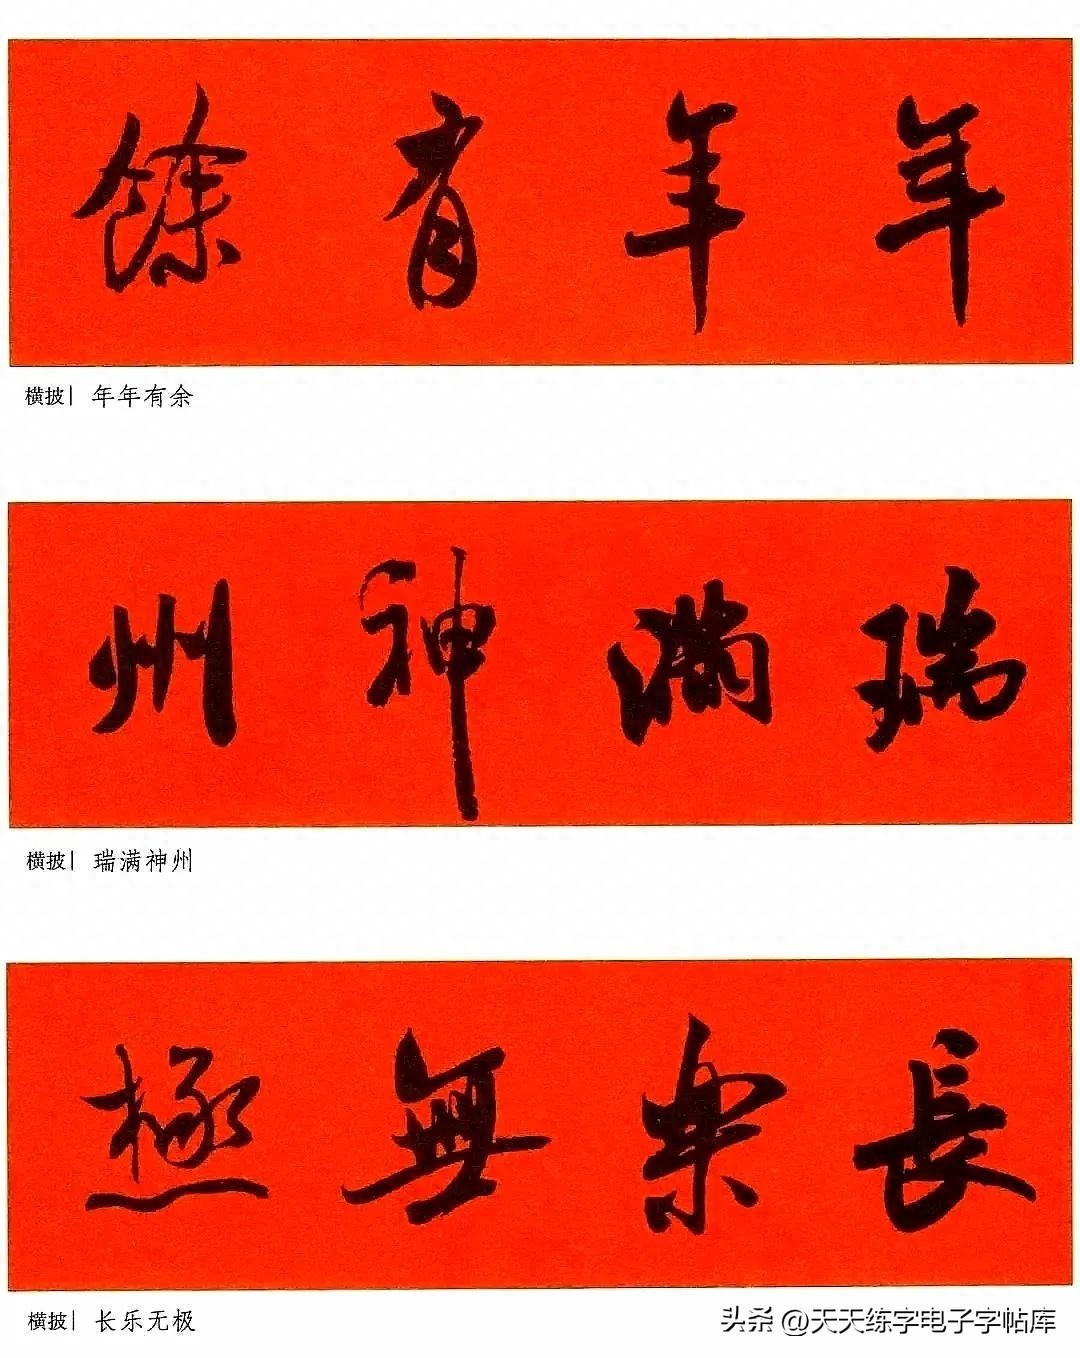 年年有餘
横披| 年年有余
瑞滿神州
横披| 瑞满神州
長樂無極
横披| 长乐无极
头条 @天天练字电子字帖库